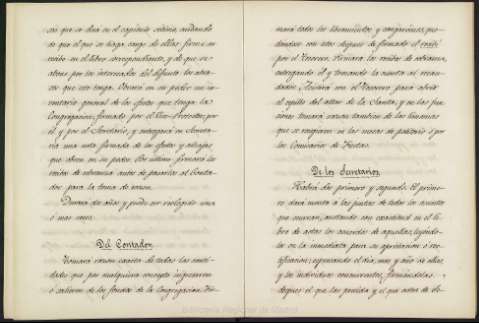 que se dirá en el capítulo sétimo, cuidando
de que el que se haga cargo de ellas firme su
recibo en el libro correspondiente, y de que se
abone por los interesados del difunto los atra-
sos que este tenga. Tendrá en su poder un in-
ventario general de los efectos que tenga la
Congregacion, formado por el
él y por el Secretario, y entregará en Secreta-
ria una nota firmada de los efectos y alhajas
que obren en su poder. Por último firmará los
recibos de cobranza antes de pasarlos al Conta-
dor para la toma de razon.
Durará dos años y podrá ser reelegido una
ó mas veces.
Del Contador.
Tomará razon exacta de todas las canti-
dades que por cualquiera concepto ingresaren
ó salieren de los fondos de la Congregacion.
mará todos los libramientos y
dandose con estos despues de firmado el recibí
por el Tesorero. Firmará los recibos de cobranza,
entregando él y tomando la cuenta al recau-
dador. Asistirá con el Tesorero para abrir
el cepillo del altar de la Santa, y en las fun-
ciones tomará razon tambien de las limosnas
que se recogieren en las mesas de petitorio ó por
los Comisarios de Fiestas.
De los Secretarios.
Habrá dos: primero y segundo. El prime-
ro dará cuenta á las juntas de todos los asuntos
que ocurran, anotando con exactitud en el li-
bro de actas los acuerdos de aquellas, leyéndo-
la en la inmediata para su aprobacion ó rec-
tificacion; expresando el dia, mes y año de ellas,
y los individuos concurrentes, firmándolas
despues el que las presida y el que actúe de Se-
Biblioteca Regional de Madrid